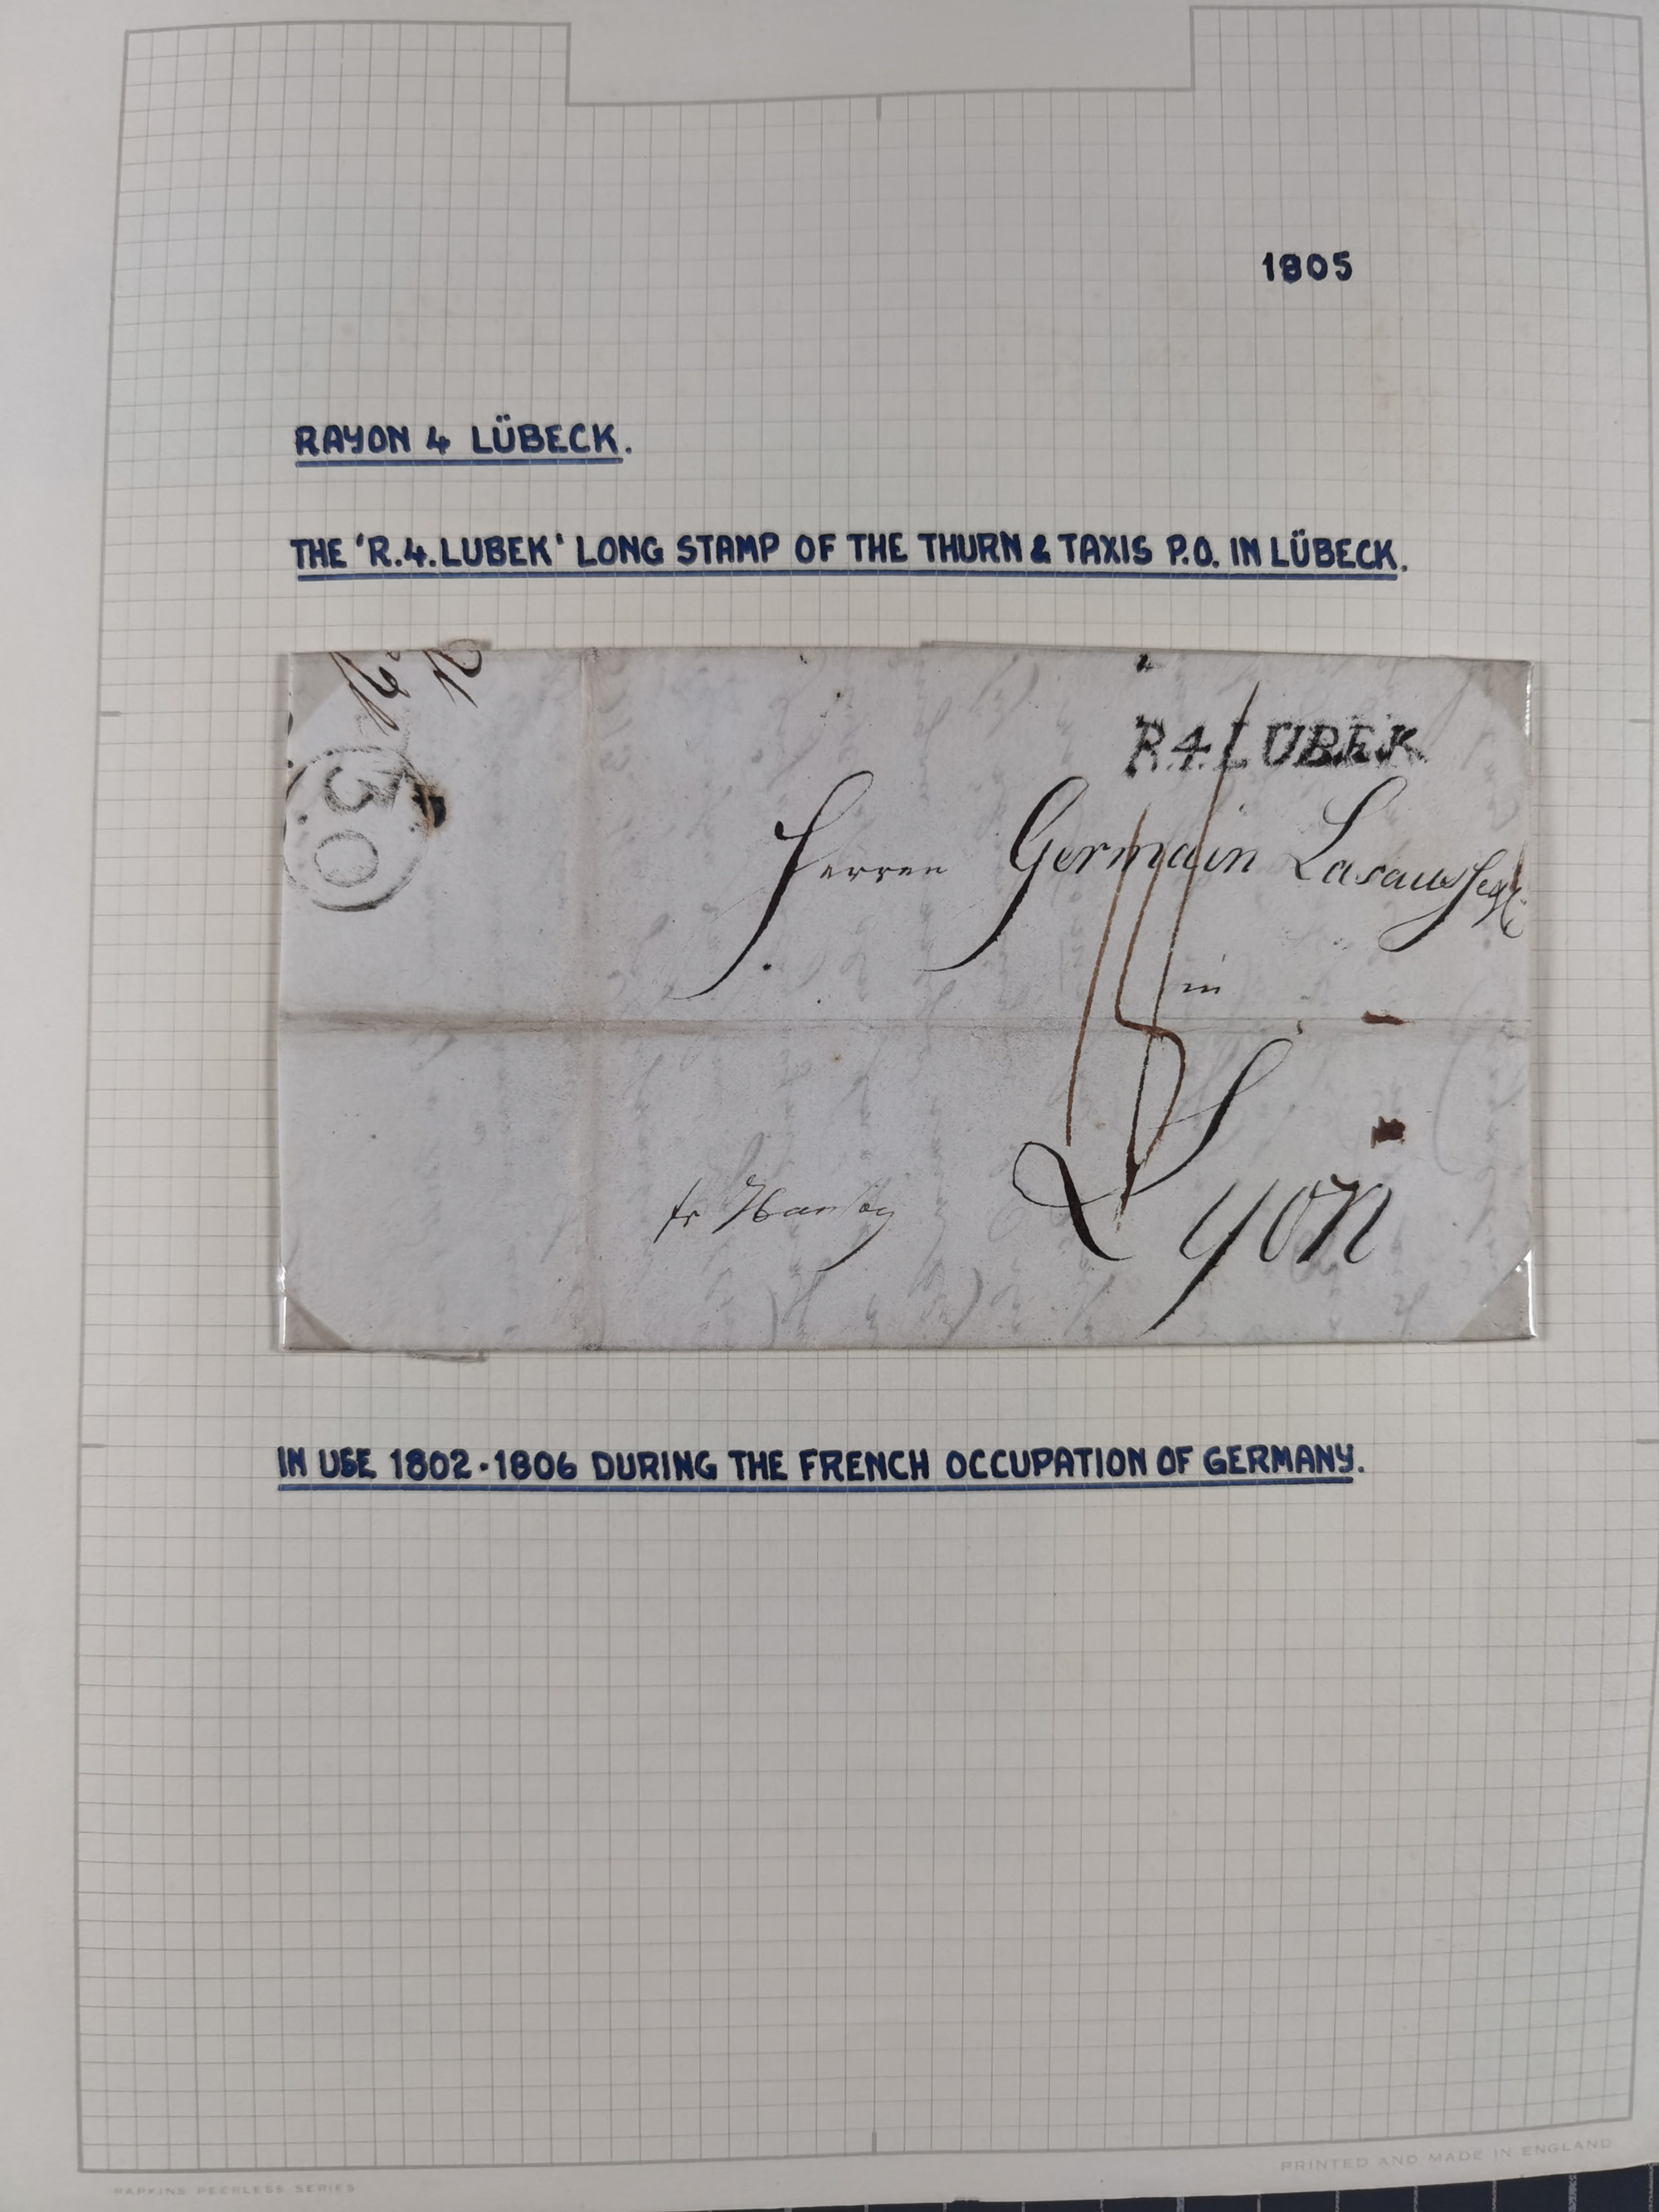 1805
RAYON 4 LÜBECK.
THE 'R.4.LUBEK' LONG STAMP OF THE THURN & TAXIS P.O. IN LÜBECK.
R.4.LUBEK
30
Herren Germain
in
Lyon
fr
IN USE 1802-1806 DURING THE FRENCH OCCUPATION OF GERMANY.
PRINTED AND MADE IN ENGLAND
PEERLESS SERIES